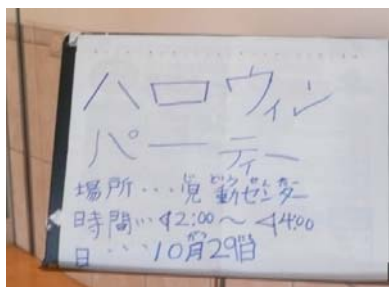 ハロウィン
パーティー
場所・・・党動センター
時間・・・12:00～14:00
日・・・10月29日